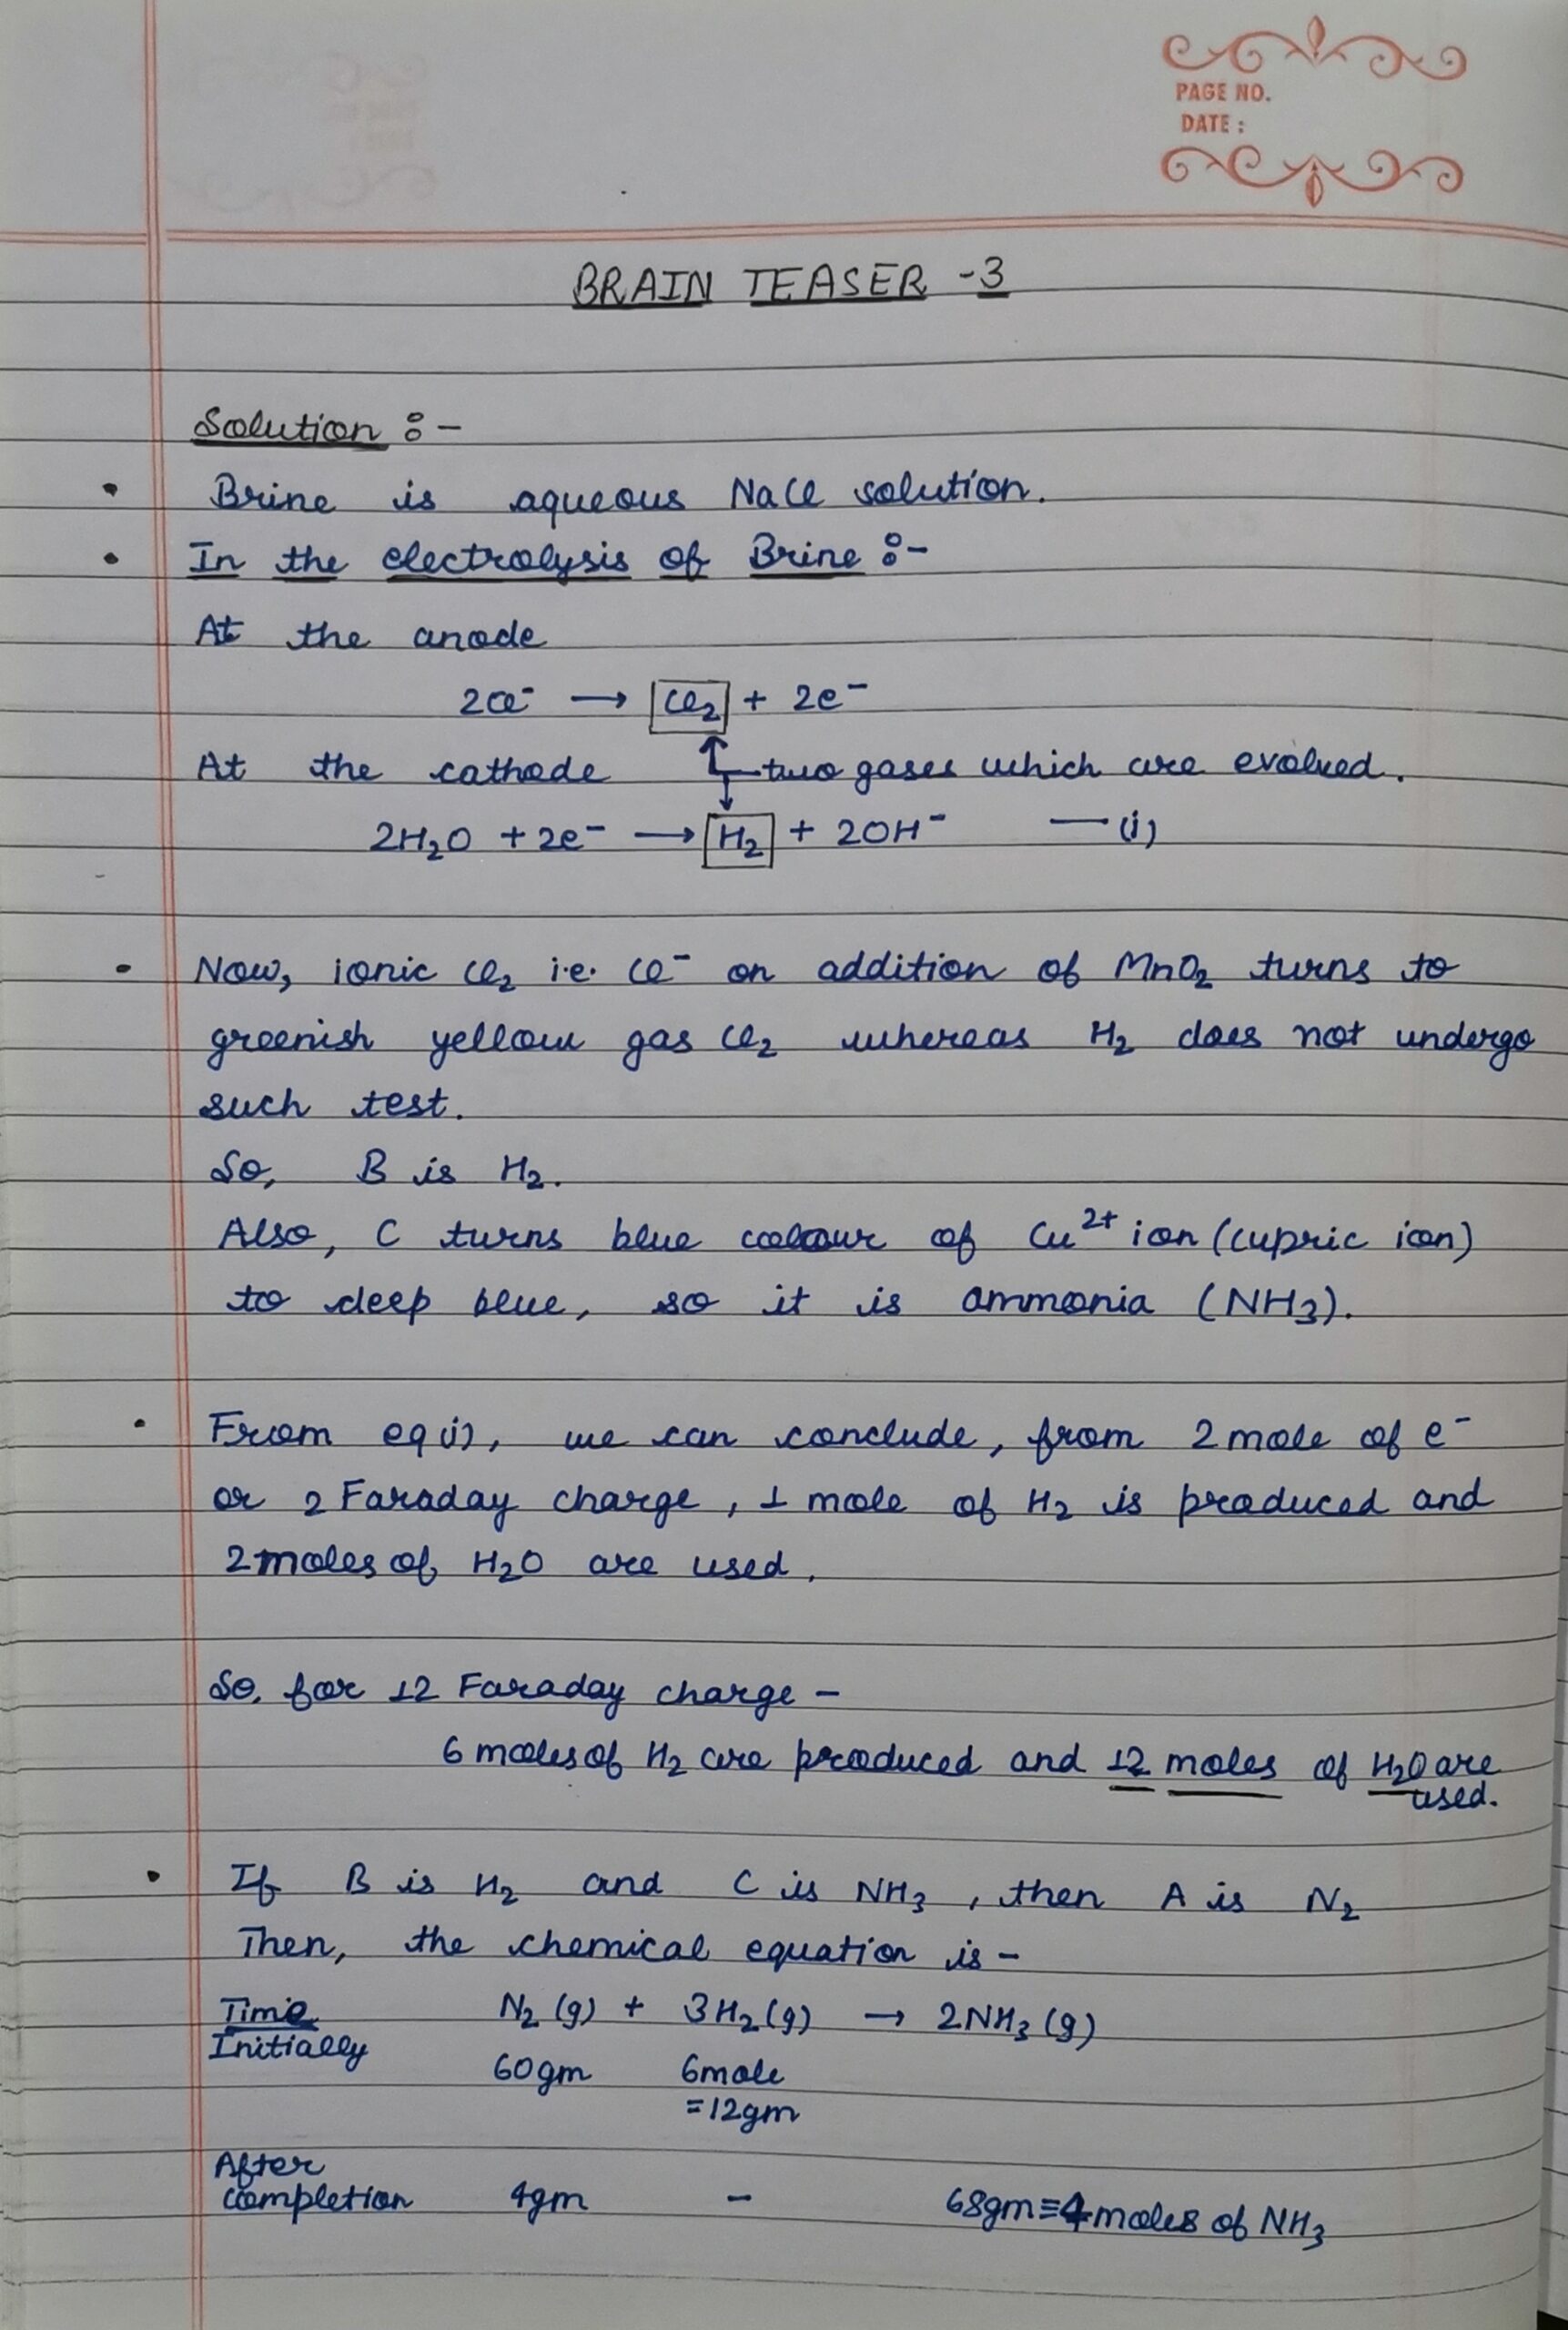 PAGE NO.
DATE :
BRAIN TEASER -3
Solution :-
• Brine is aqueous NaCl solution.
• In the electrolysis of Brine :-
At the anode
2Cl⁻ → Cl₂ + 2e⁻
At the cathode two gases which are evolved.
2H₂O + 2e⁻ → H₂ + 2OH⁻ —(i)
• Now, ionic Cl₂ i.e. Cl⁻ on addition of MnO₂ turns to
greenish yellow gas Cl₂ whereas H₂ does not undergo
such test.
So, B is H₂.
Also, C turns blue colour of Cu²⁺ ion (cupric ion)
to deep blue, so it is ammonia (NH₃).
• From eq (i), we can conclude, from 2 mole of e⁻
or 2 Faraday charge, 1 mole of H₂ is produced and
2 moles of H₂O are used.
So, for 12 Faraday charge -
6 moles of H₂ are produced and 12 moles of H₂O are
used.
• If B is H₂ and C is NH₃, then A is N₂
Then, the chemical equation is -
Time N₂ (g) + 3H₂ (g) → 2NH₃ (g)
Initially
60gm 6mole
=12gm
After
completion 4gm - 68gm≡4moles of NH₃